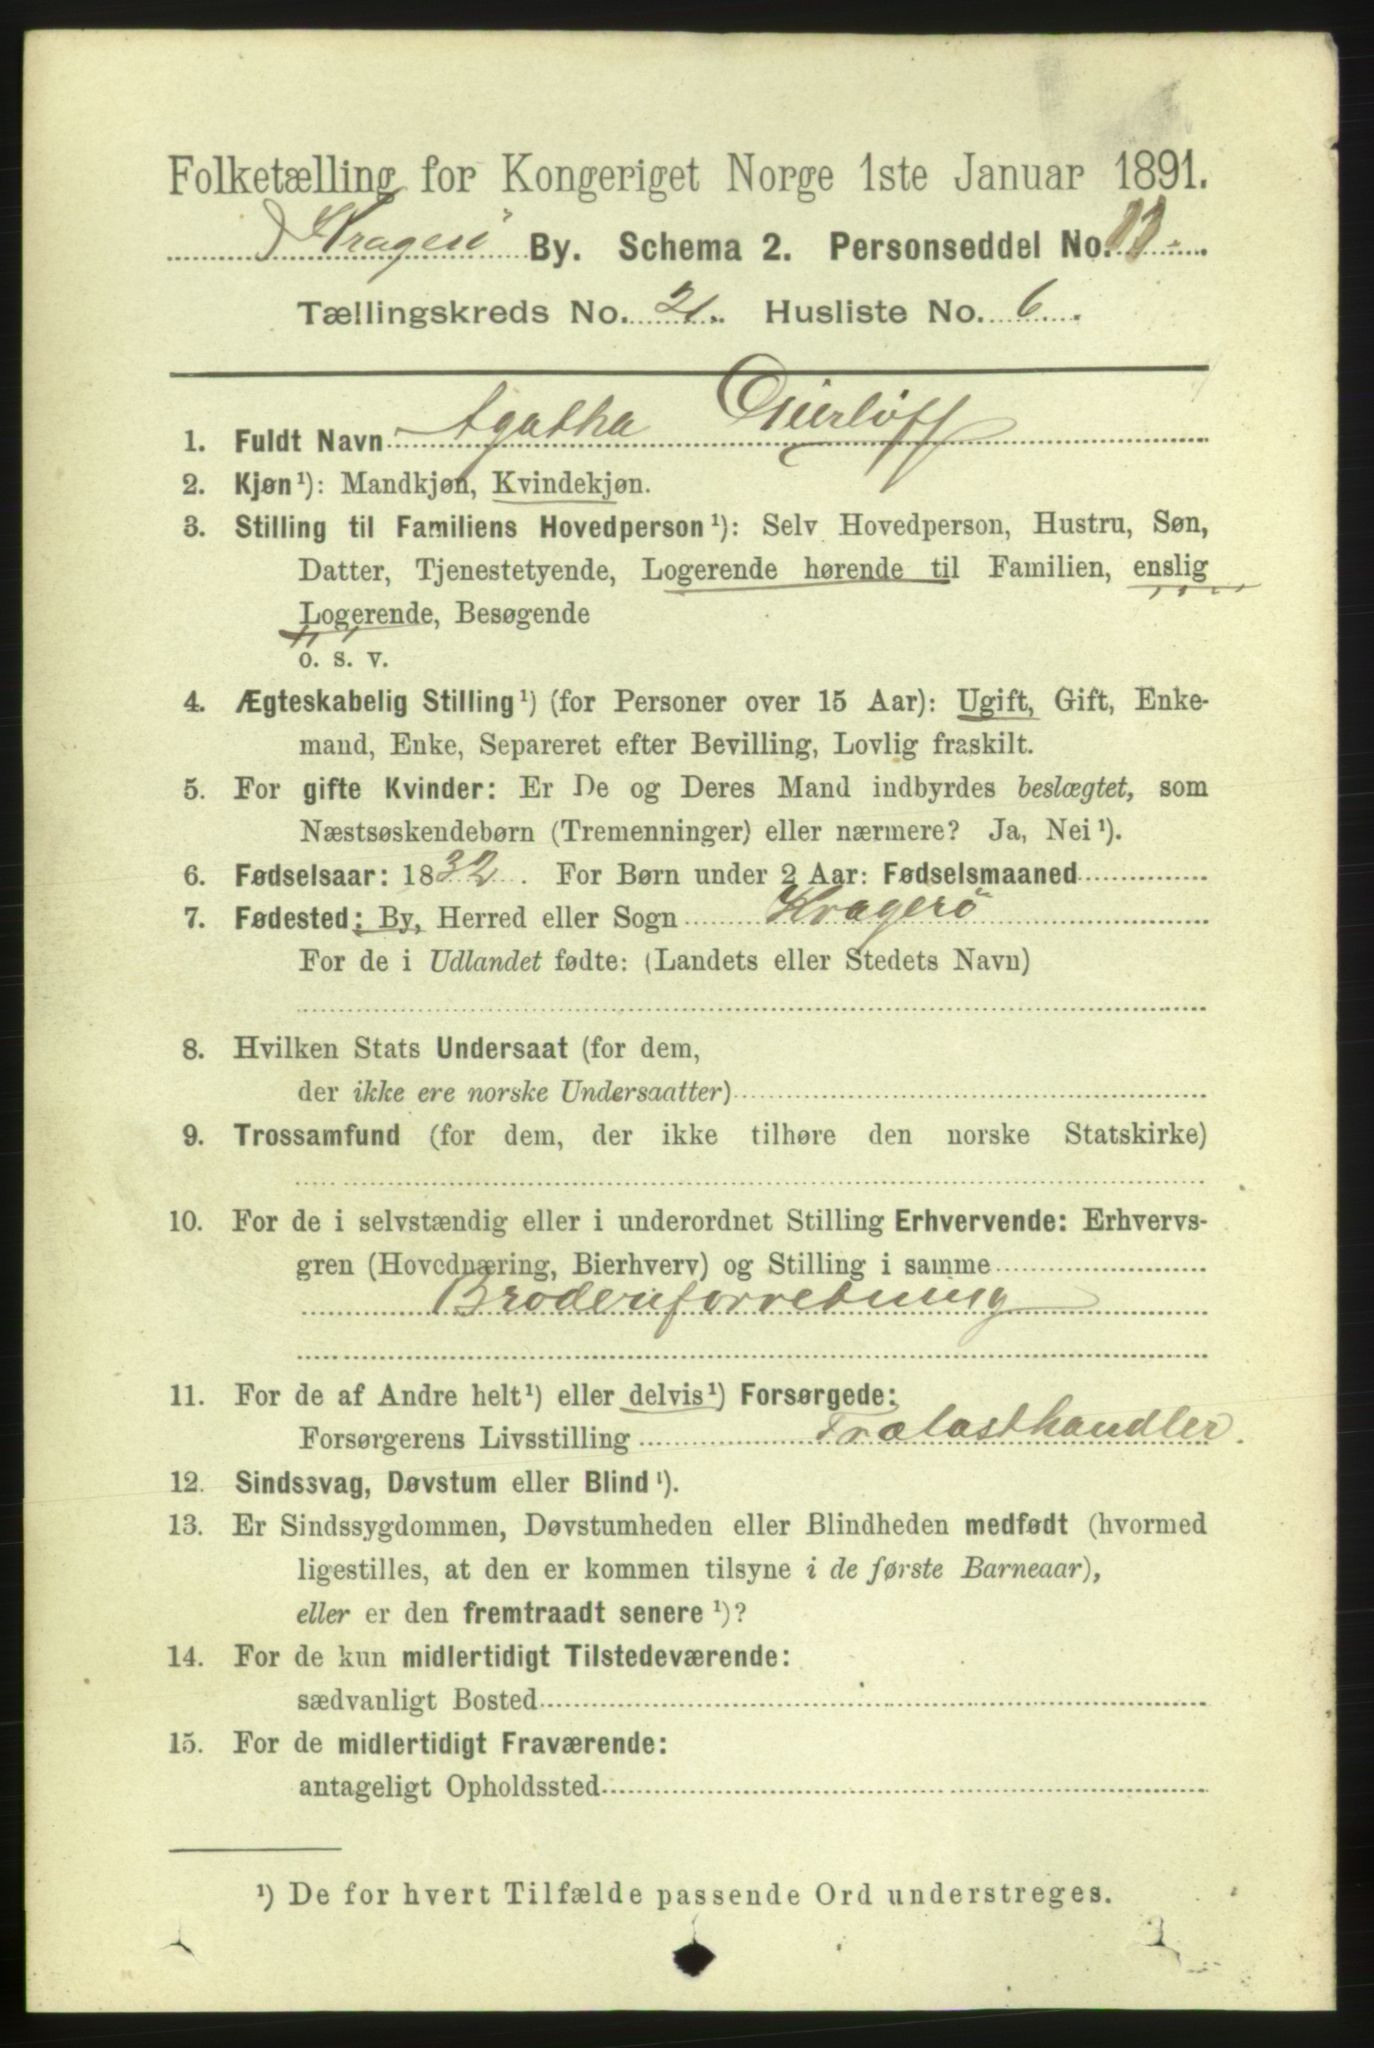 Folketælling for Kongeriget Norge 1ste Januar 1891.
Kragerö By. Schema 2. Personseddel No. 11
Tællingskreds No. 21. Husliste No. 6.
1. Fuldt Navn Agatha Dierløff
2. Kjøn¹): Mandkjøn, Kvindekjøn.
3. Stilling til Familiens Hovedperson¹): Selv Hovedperson, Hustru, Søn,
Datter, Tjenestetyende, Logerende hørende til Familien, enslig
Logerende, Besøgende
o. s. v.
4. Ægteskabelig Stilling¹) (for Personer over 15 Aar): Ugift, Gift, Enke-
mand, Enke, Separeret efter Bevilling, Lovlig fraskilt.
5. For gifte Kvinder: Er De og Deres Mand indbyrdes beslægtet, som
Næstsøskendebørn (Tremenninger) eller nærmere? Ja, Nei¹).
6. Fødselsaar: 1832. For Børn under 2 Aar: Fødselsmaaned
7. Fødested: By, Herred eller Sogn Kragerö
For de i Udlandet fødte: (Landets eller Stedets Navn)
8. Hvilken Stats Undersaat (for dem,
der ikke ere norske Undersaatter)
9. Trossamfund (for dem, der ikke tilhøre den norske Statskirke)
10. For de i selvstændig eller i underordnet Stilling Erhvervende: Erhvervs-
gren (Hovednæring, Bierhverv) og Stilling i samme
Broderiforretning
11. For de af Andre helt¹) eller delvis¹) Forsørgede:
Forsørgerens Livsstilling Trælasthandler.
12. Sindssvag, Døvstum eller Blind¹).
13. Er Sindssygdommen, Døvstumheden eller Blindheden medfødt (hvormed
ligestilles, at den er kommen tilsyne i de første Barneaar),
eller er den fremtraadt senere¹)?
14. For de kun midlertidigt Tilstedeværende:
sædvanligt Bosted
15. For de midlertidigt Fraværende:
antageligt Opholdssted
¹) De for hvert Tilfælde passende Ord understreges.